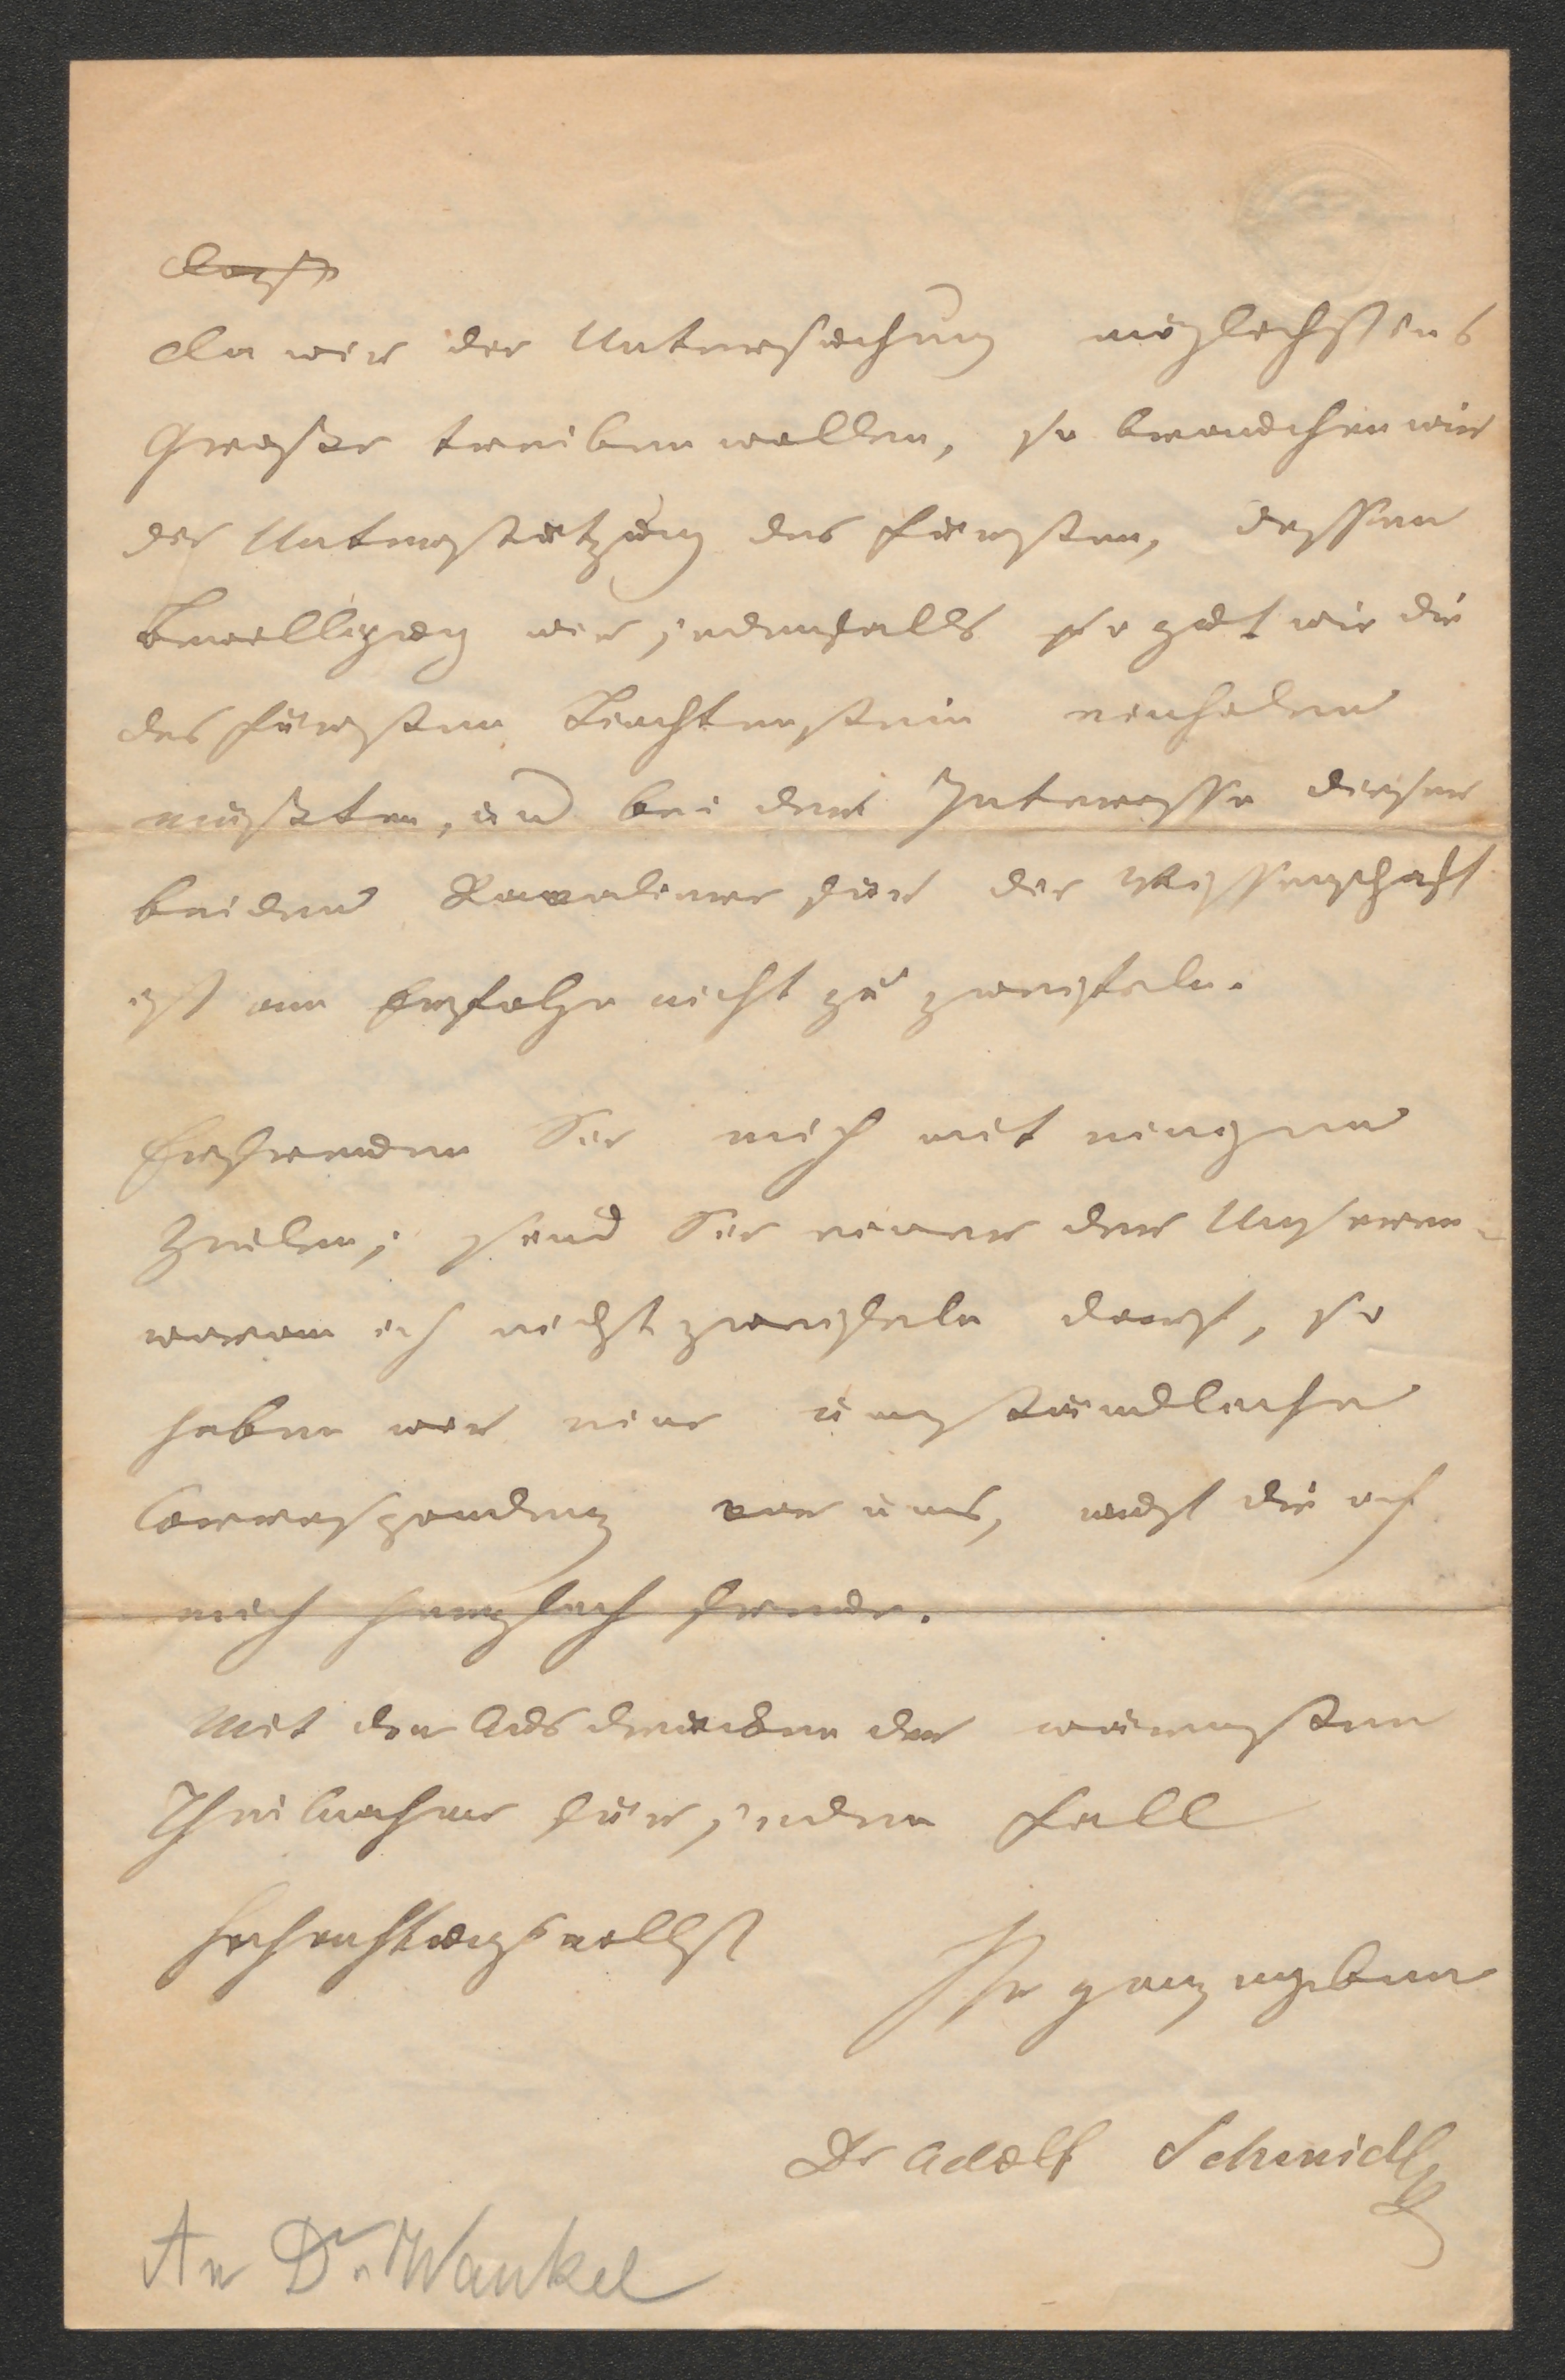 darf
Da wir die Untersuchung möglichst ins
Große treiben wollen, so brauchen wir
die Unterstützung des Fürsten, dessen
Bewilligung wir jedenfalls so gut wie die
des Fürsten Liechtenstein einholen
müßten, und bei dem Interesse dieser
beiden Kavaliere für die Wissenschaft
ist am Erfolge nicht zu zweifeln.
Erfreuen Sie mich mit einigen
Zeilen; sind Sie einer der Unseren
woran ich nicht zweifeln darf, so
haben wir eine umständliche
Correspondenz vor uns, auf die ich
mich herzlich freue.
Mit den Ausdrücken der wärmsten
Theilnahme für jeden Fall
hochachtungsvollst
Ihr ganz ergebener
Dr Adolf Schmidl
An Dr. Wankel